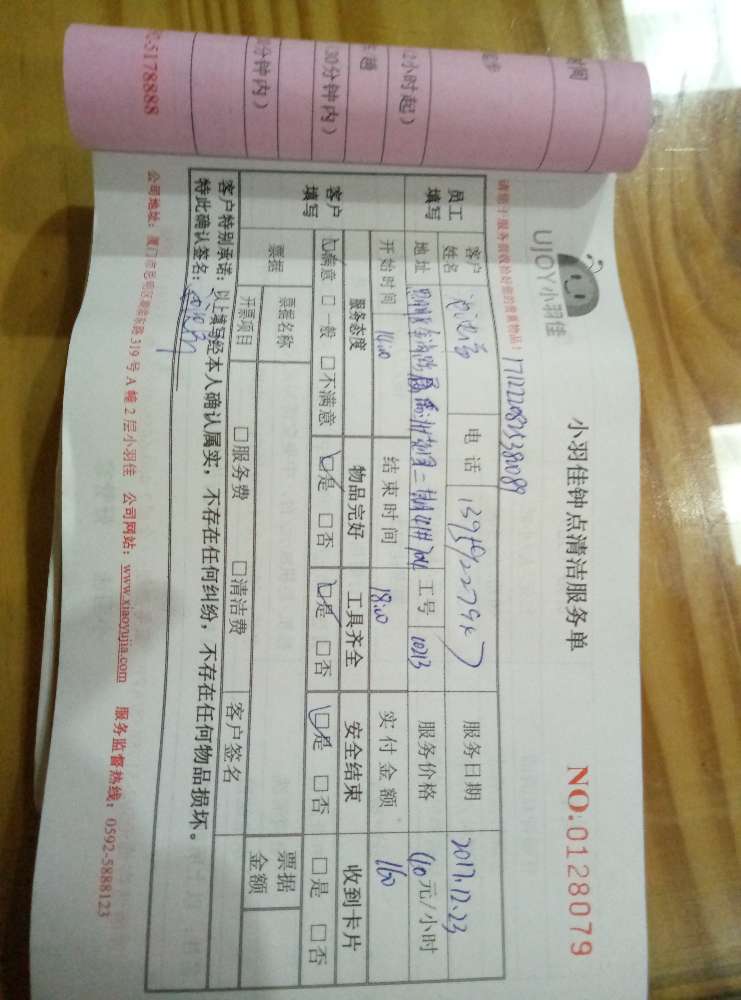 UJOY小羽佳
小羽佳钟点清洁服务单
NO:0128079
请您于服务前收拾好您的贵重物品!
员工填写
客户姓名
电话
服务日期 2017.12.23
地址
工号 10213
服务价格 40元/小时
开始时间 14:00
结束时间 18:00
实付金额 160
客户填写
服务态度 物品完好 工具齐全 安全结束 收到卡片
□满意 □一般 □不满意 □是 □否 □是 □否 □是 □否 □是 □否
票据 票据名称
票据金额
开票项目 □服务费 □清洁费 客户签名
客户特别承诺:以上填写经本人确认属实,不存在任何纠纷,不存在任何物品损坏。
特此确认签名:
公司地址:厦门市思明区 319号A幢2层小羽佳 公司网站:www.xiaoyujia.com 服务监督热线:0592-5888123
2小时起)
30分钟内)
分钟内)
5178888